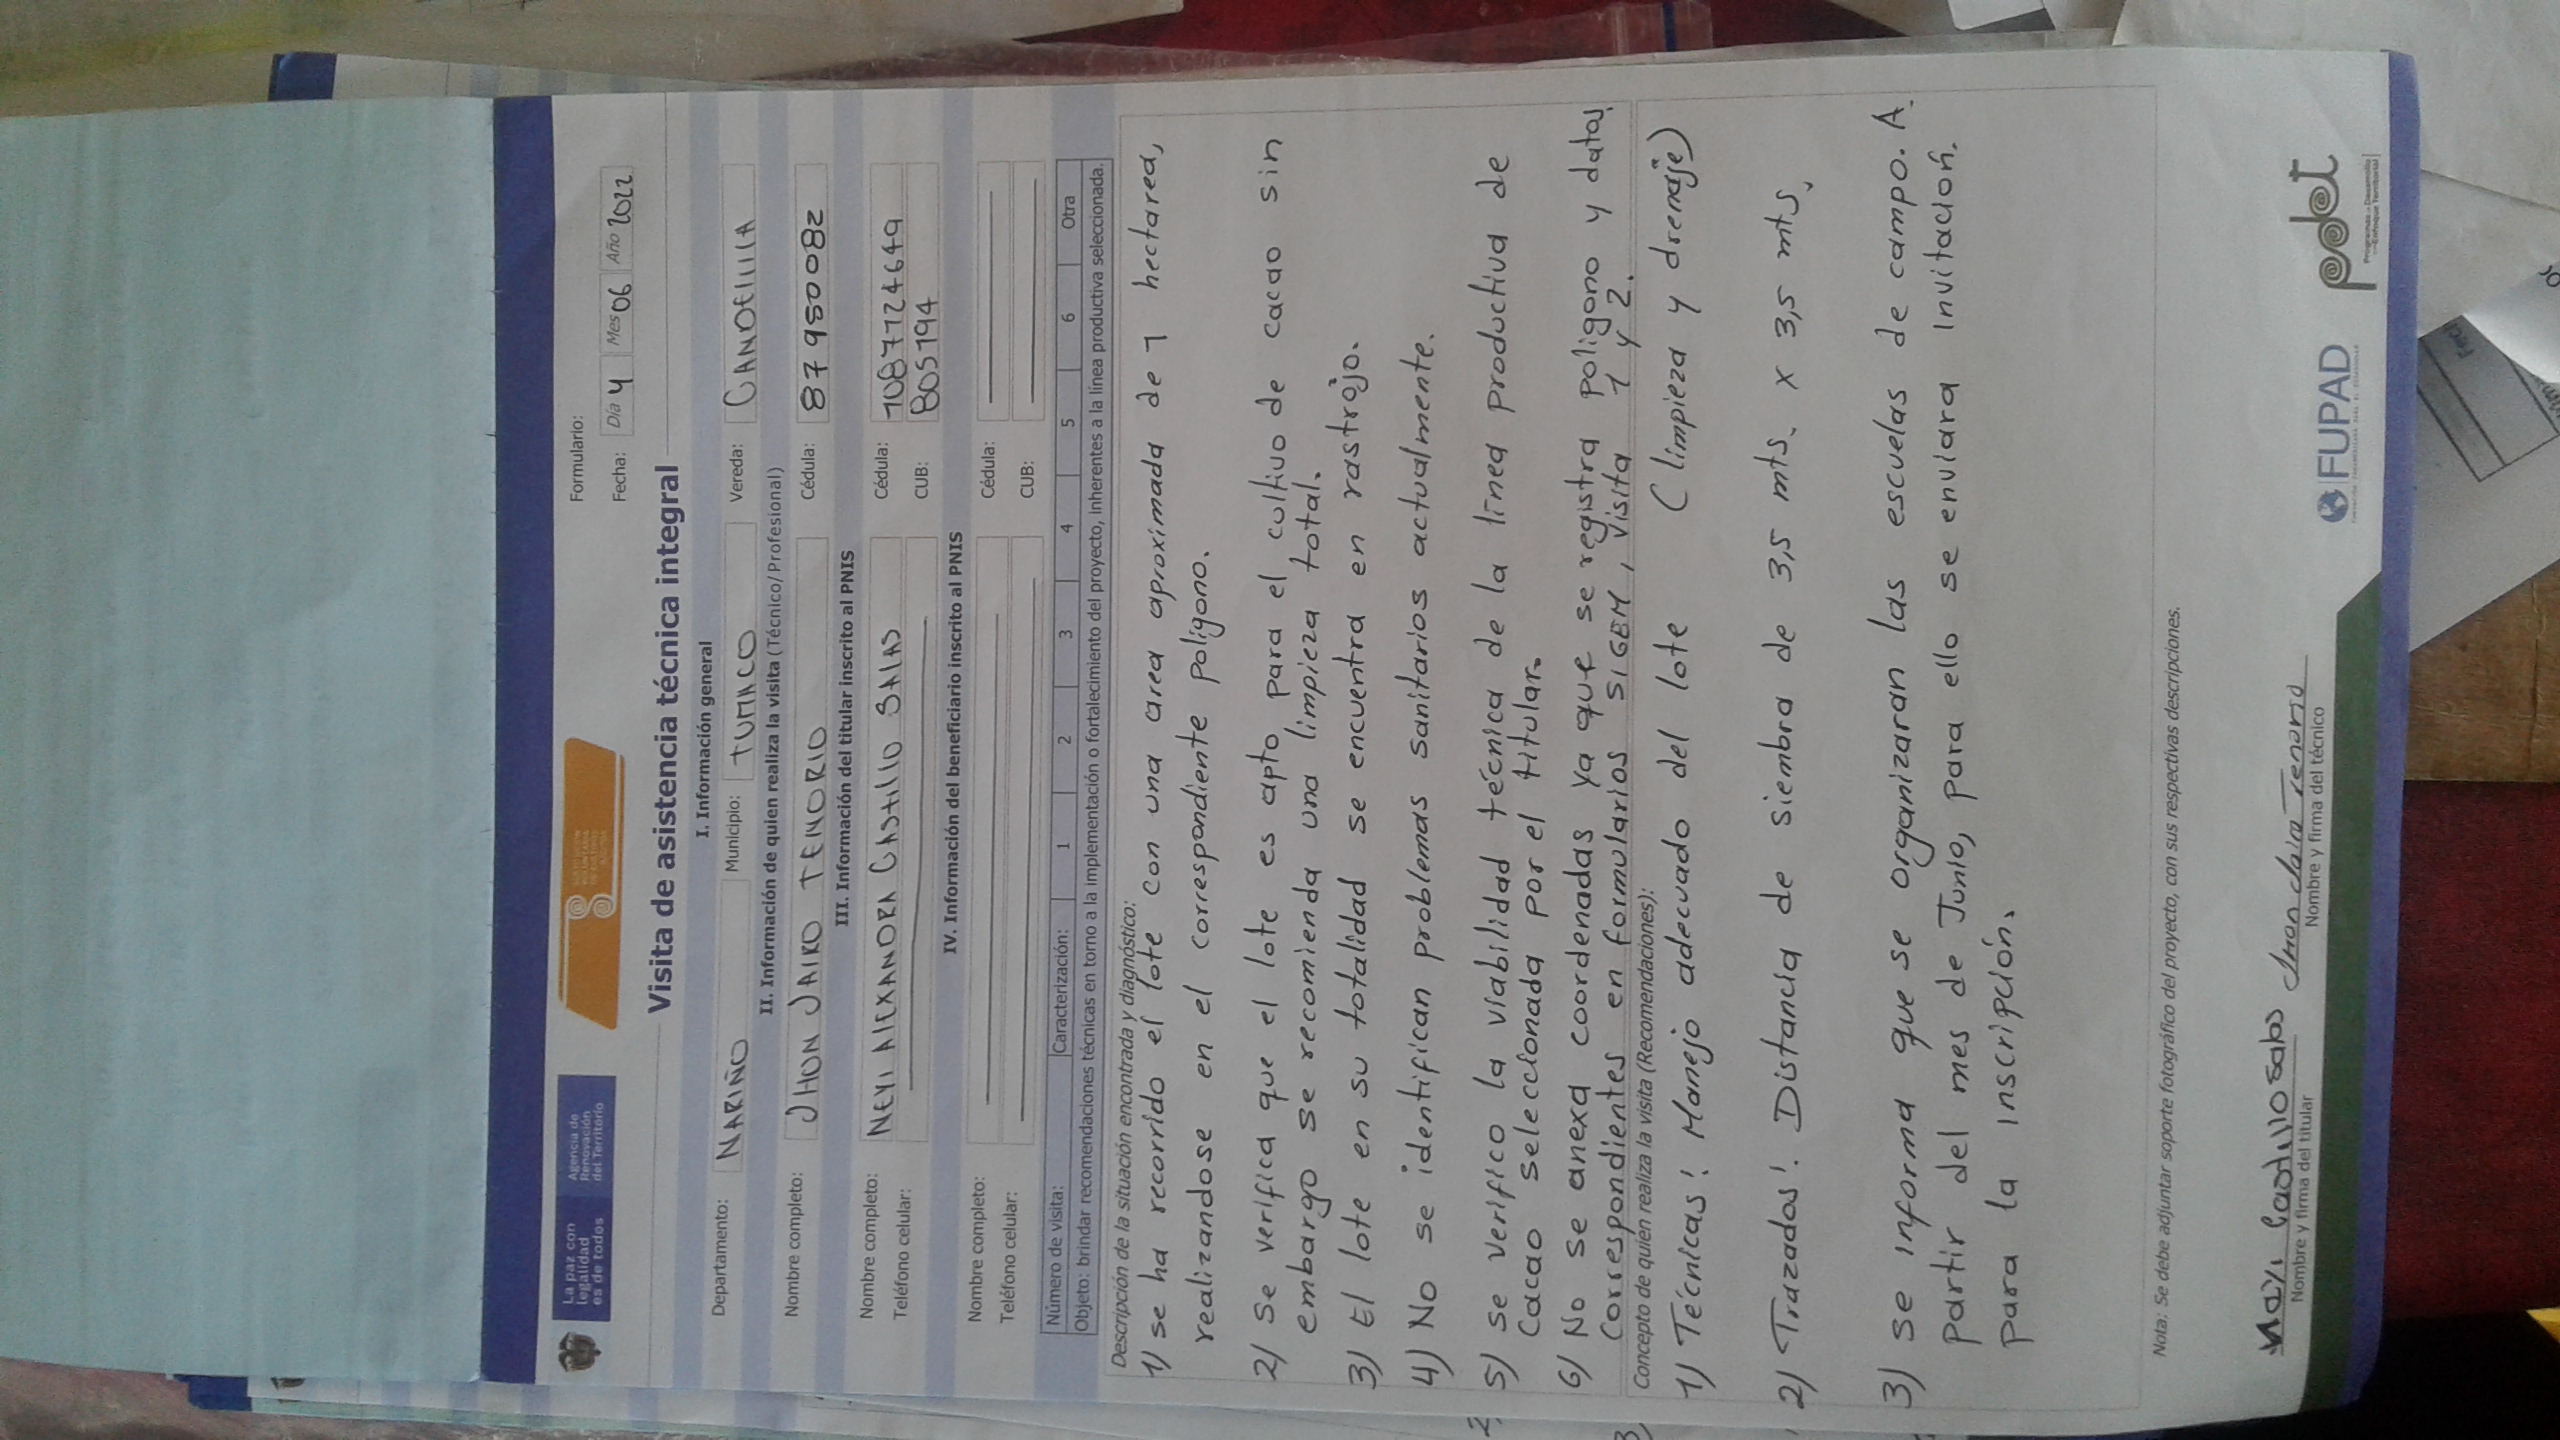 La paz con legalidad es de todos
Agencia de Renovación del Territorio
Formulario:
Fecha: Día 4 Mes 06 Año 2022
Visita de asistencia técnica integral
I. Información general
Departamento: NARIÑO Municipio: TUMACO Vereda: CANDELILLA
II. Información de quien realiza la visita (Técnico/Profesional)
Nombre completo: JHON JAIRO TENORIO Cédula: 87950082
III. Información del titular inscrito al PNIS
Nombre completo: NEYI ALEXANDRA CASTILLO SALAS Cédula: 1087724649
Teléfono celular: CUB: B05194
IV. Información del beneficiario inscrito al PNIS
Nombre completo: Cédula:
Teléfono celular: CUB:
Número de visita: Caracterización: 1 2 3 4 5 6 Otra
Objeto: brindar recomendaciones técnicas en torno a la implementación o fortalecimiento del proyecto, inherentes a la línea productiva seleccionada.
Descripción de la situación encontrada y diagnóstico:
1) se ha recorrido el lote con una area aproximada de 1 hectarea,
realizandose en el correspondiente poligono.
2) se verifica que el lote es apto para el cultivo de cacao sin
embargo se recomienda una limpieza total.
3) El lote en su totalidad se encuentra en rastrojo.
4) No se identifican problemas sanitarios actualmente.
5) se verifico la viabilidad técnica de la línea productiva de
Cacao seleccionada por el titular.
6) No se anexa coordenadas ya que se registra poligono y datos
Correspondientes en formularios SIGEM, visita 1 y 2.
Concepto de quien realiza la visita (Recomendaciones):
1) Técnicas: Manejo adecuado del lote (limpieza y drenaje)
2) Trazados: Distancia de siembra de 3,5 mts. x 3,5 mts.
3) se informa que se organizaran las escuelas de campo. A
partir del mes de Junio, para ello se enviara invitación.
para la inscripción.
Nota: Se debe adjuntar soporte fotográfico del proyecto, con sus respectivas descripciones.
Castillo Jhon Jairo Tenorio
Nombre y firma del titular Nombre y firma del técnico
FUPAD
pdet